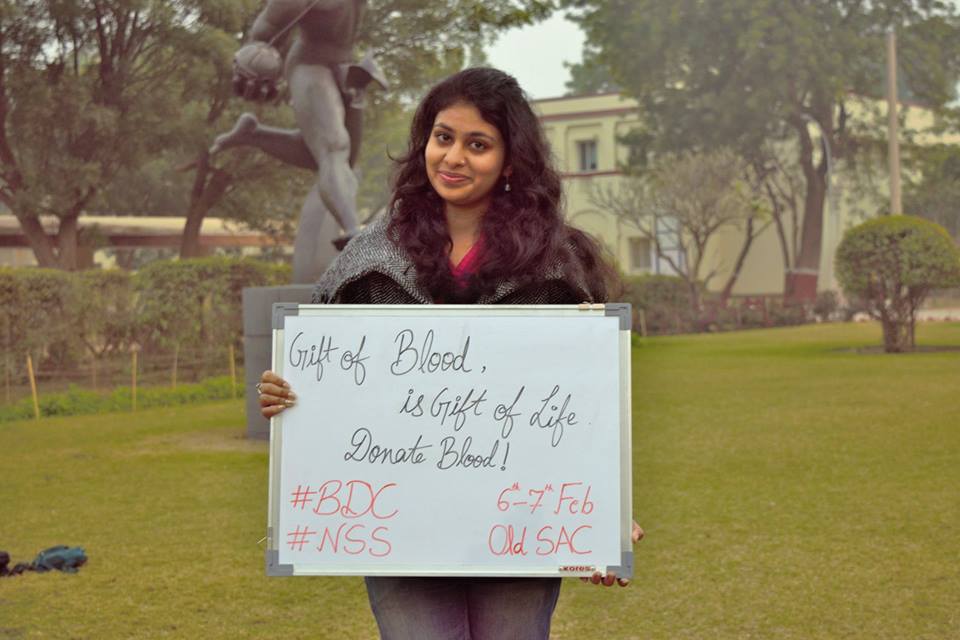 Gift of Blood,
is Gift of Life.
Donate Blood!
#BDC 6th-7th Feb
#NSS Old SAC
kores